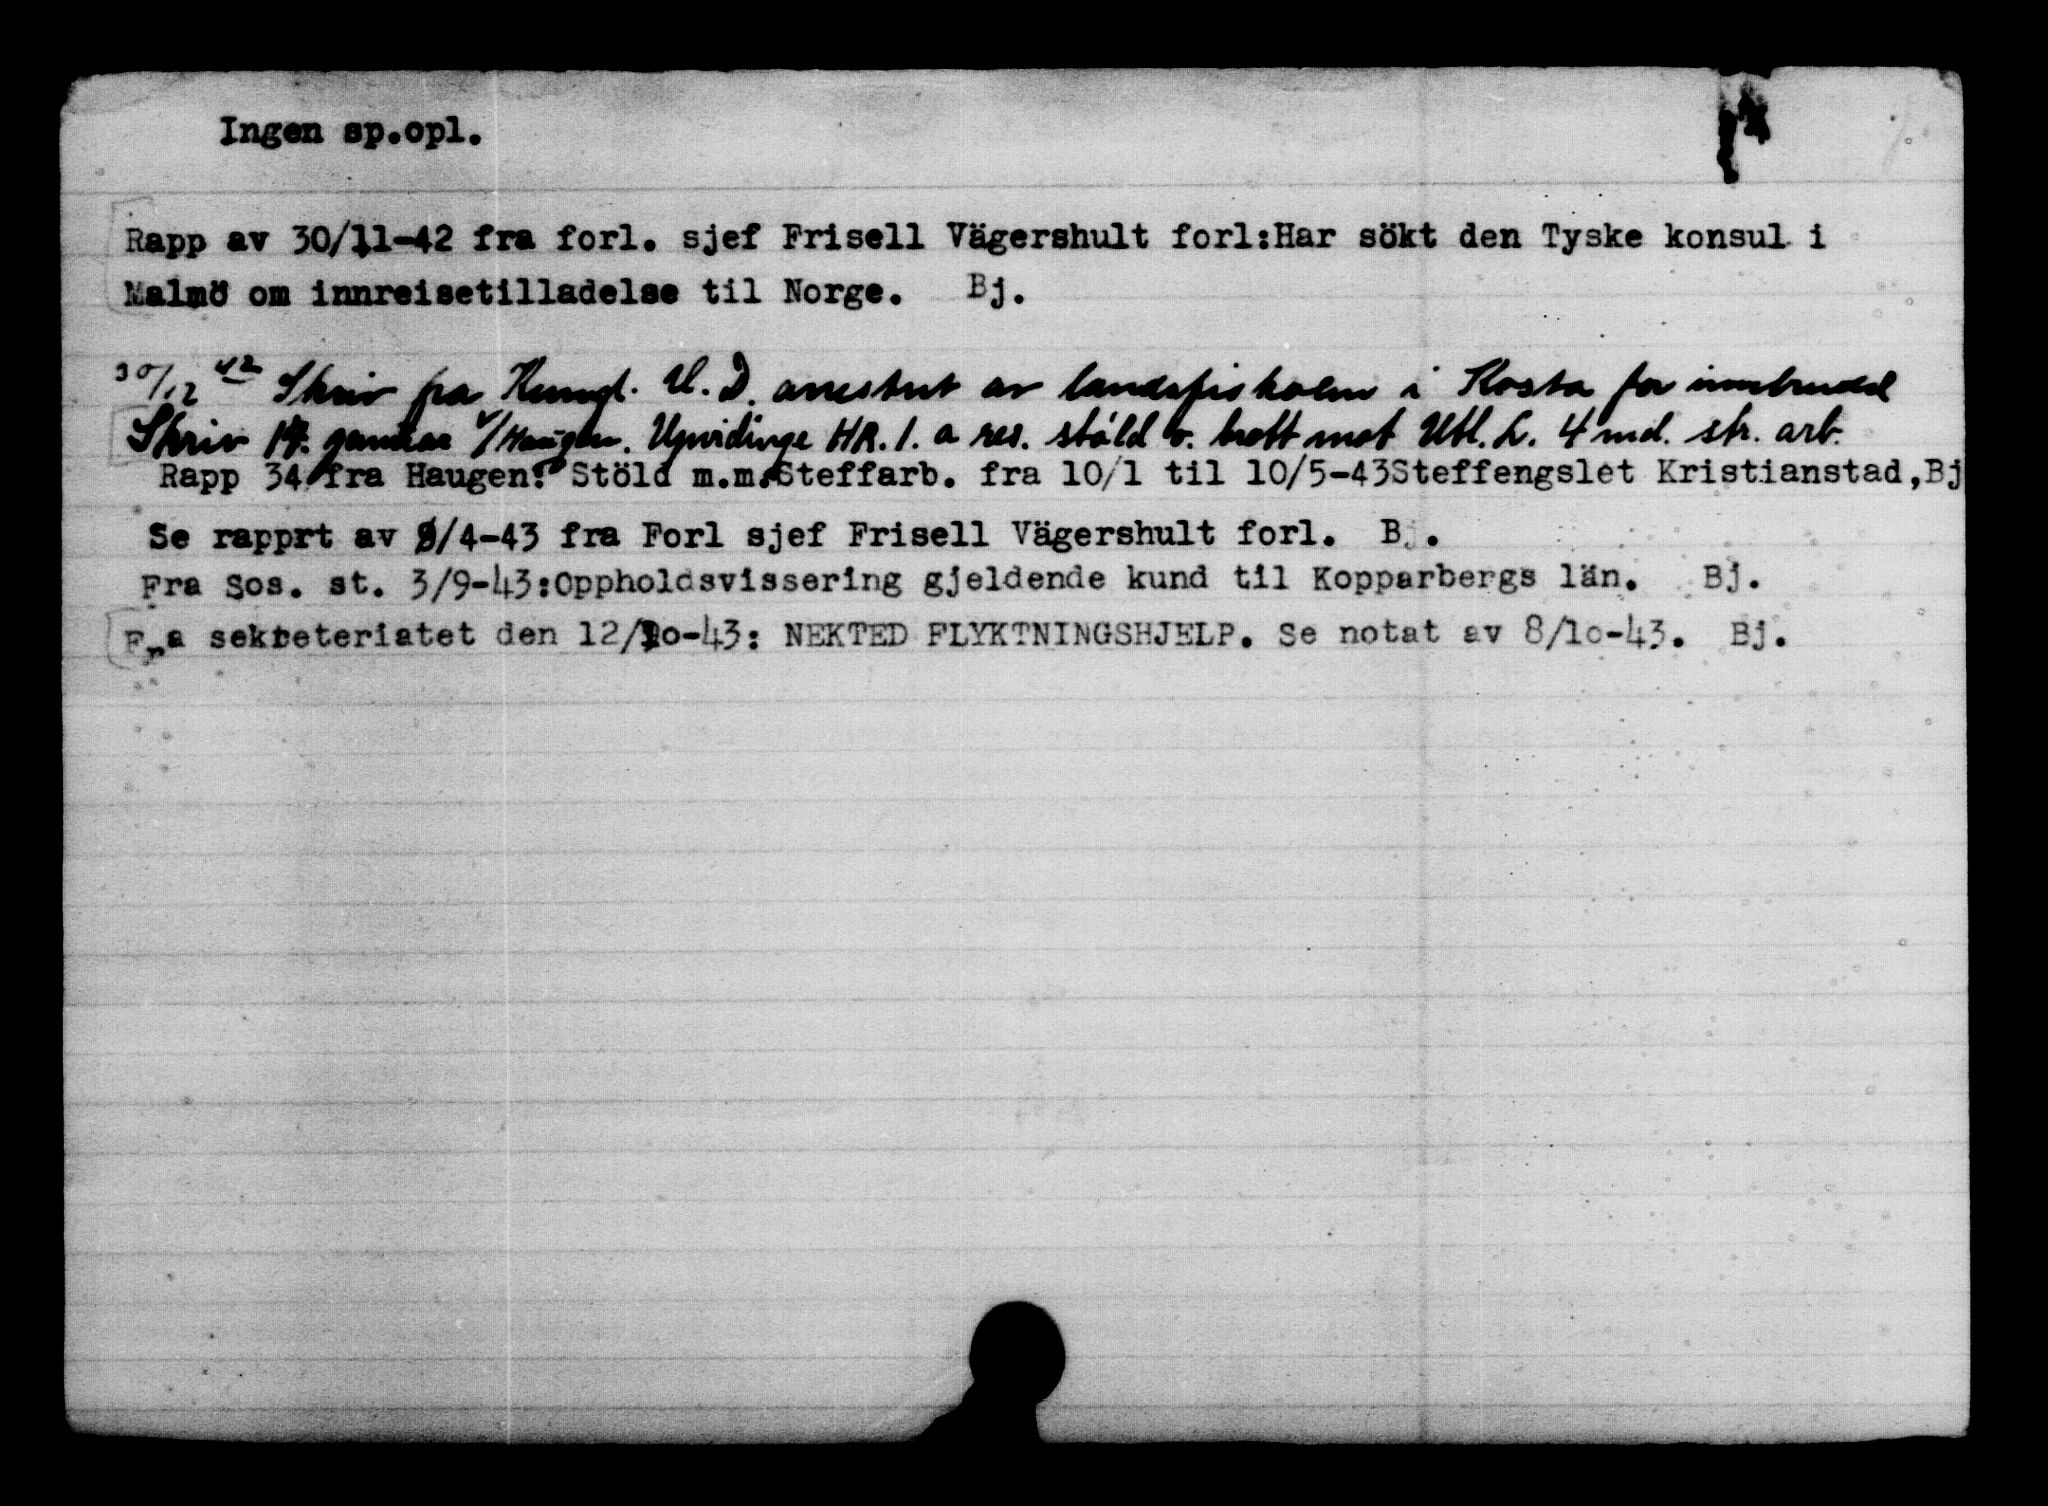 Ingen sp.opl.
Rapp av 30/11-42 fra forl. sjef Frisell Vägershult forl:Har sökt den Tyske konsul i
Malmö om innreisetilladelse til Norge. Bj.
30/12 42 Skriv fra Kungl. U.D. arrestert av landsfiskalen i Kosta for innbrudd
Skriv 14. januar f/Haugen. Upvidinge HR. 1. a res. stöld o. brott mot Utl. L. 4 md. str. arb.
Rapp 34 fra Haugen: Stöld m.m. Steffarb. fra 10/1 til 10/5-43Steffengslet Kristianstad,Bj
Se rapprt av 9/4-43 fra Forl sjef Frisell Vägershult forl. Bj.
Fra Sos. st. 3/9-43:Oppholdsvissering gjeldende kund til Kopparbergs län. Bj.
Fra sekreteriatet den 12/10-43: NEKTED FLYKTNINGSHJELP. Se notat av 8/10-43. Bj.